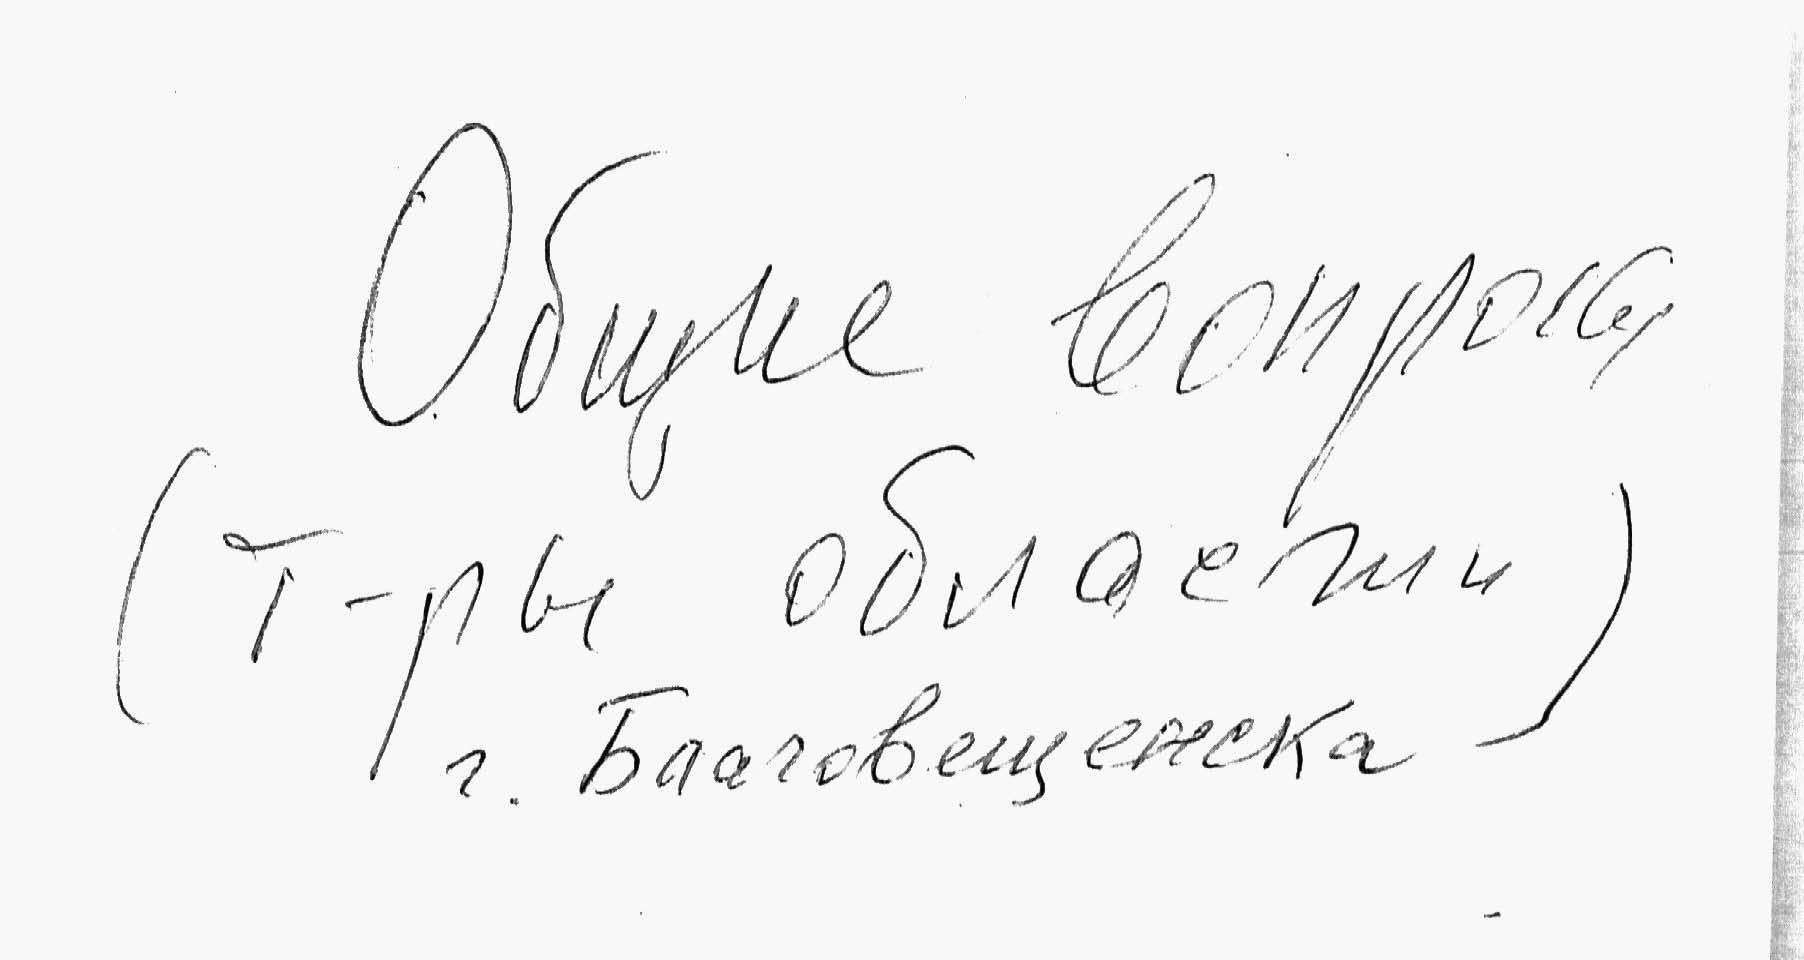 Общие вопросы
(т-ры области)
г. Благовещенска